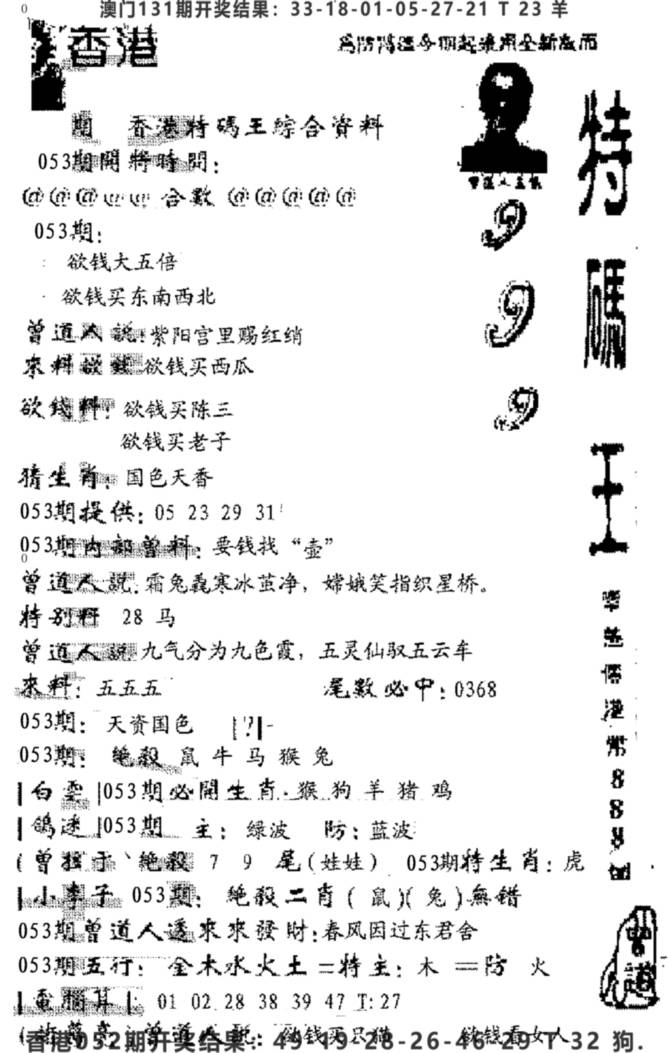 澳门131期开奖结果：33-18-01-05-27-21 T 23 羊
香港
為防偽溫今期起採用全新版面
特碼王
期 香港特碼王綜合資料
053期開將時間：
@@@ 合數 @@@@@
053期：
欲钱大五倍
欲钱买东南西北
999
曾道人説：紫阳宫里赐红绡
來料欲錢 欲钱买西瓜
欲錢料：欲钱买陈三
欲钱买老子
猜生肖：国色天香
053期提供：05 23 29 31
053期内部曾料：要钱找“壶”
曾道人説：霜兔義寒冰茧净，嫦娥笑指织星桥。
特别料 28 马
曾道人説 九气分为九色霞，五灵仙驭五云车
來料：五五五 尾數必中：0368
053期：天资国色 |?|-
053期：绝殺 鼠 牛 马 猴 兔
|白 |053期必開生肖·猴 狗 羊 猪 鸡
|鴿迷|053期 主：绿波 防：蓝波
(曾 绝殺 7 9 尾(娃娃) 053期特生肖：虎
|小李子 053期：绝殺二肖(鼠)(兔)無錯
053期曾道人透來來發財：春风因过东君舍
053期五行：金木水火土=特主：木 =防 火
|電腦算|：01 02 28 38 39 47 T:27
888
曾道
香港052期开奖结果：49-19-28-26-46-29 T 32 狗.
欲钱买只猫 欲钱看女人